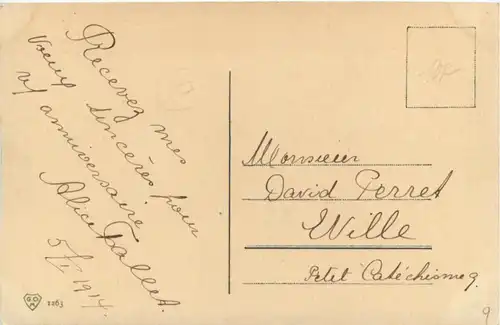 Recevez mes
voeux sincères pour
v/ anniversaire
Alice Fallet.
5/V 1914.
Monsieur
David Perret
E/Ville
Petit Catéchisme 9
1263
9